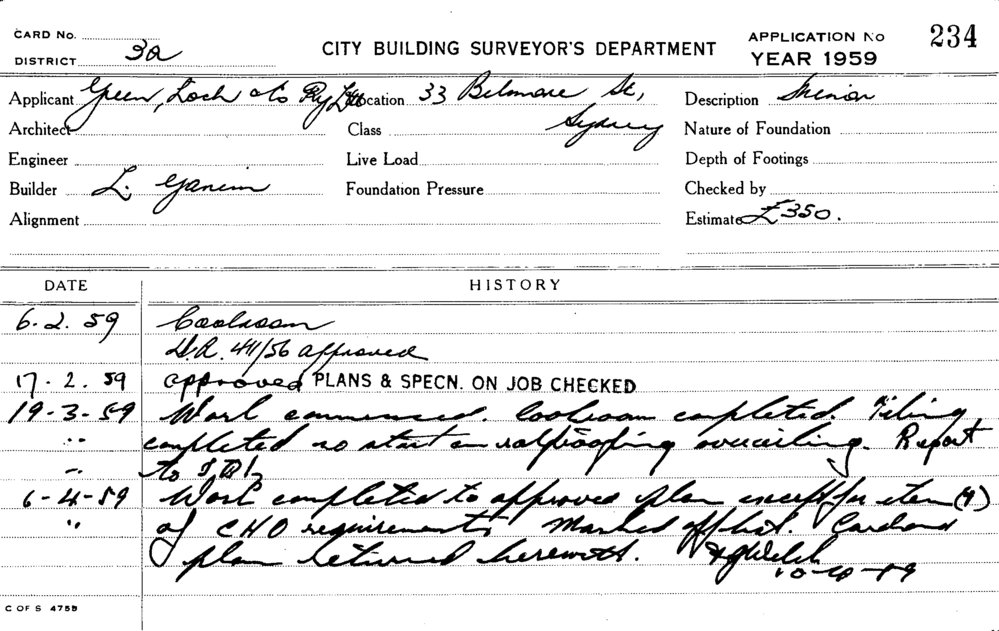 CARD No.
DISTRICT 3a
CITY BUILDING SURVEYOR'S DEPARTMENT
APPLICATION No 234
YEAR 1959
Applicant Green, Loch & Co Pty Ltd Location 33 Belmore St, Description Minor
Architect Class Sydney Nature of Foundation
Engineer Live Load Depth of Footings
Builder L. Ganim Foundation Pressure Checked by
Alignment Estimate £350.
DATE HISTORY
6.2.59 Coolroom
D.A. 411/56 approved
17.2.59 approved PLANS & SPECN. ON JOB CHECKED
19-3-59 Work commenced. Coolroom completed. Tiling
" completed no start on ratproofing overceiling. Report
" to
6-4-59 Work completed to approved plan except for item (9)
" of CHO requirements Marked off list. Card and
plan returned herewith. Welch
10-4-59
C OF S 4755